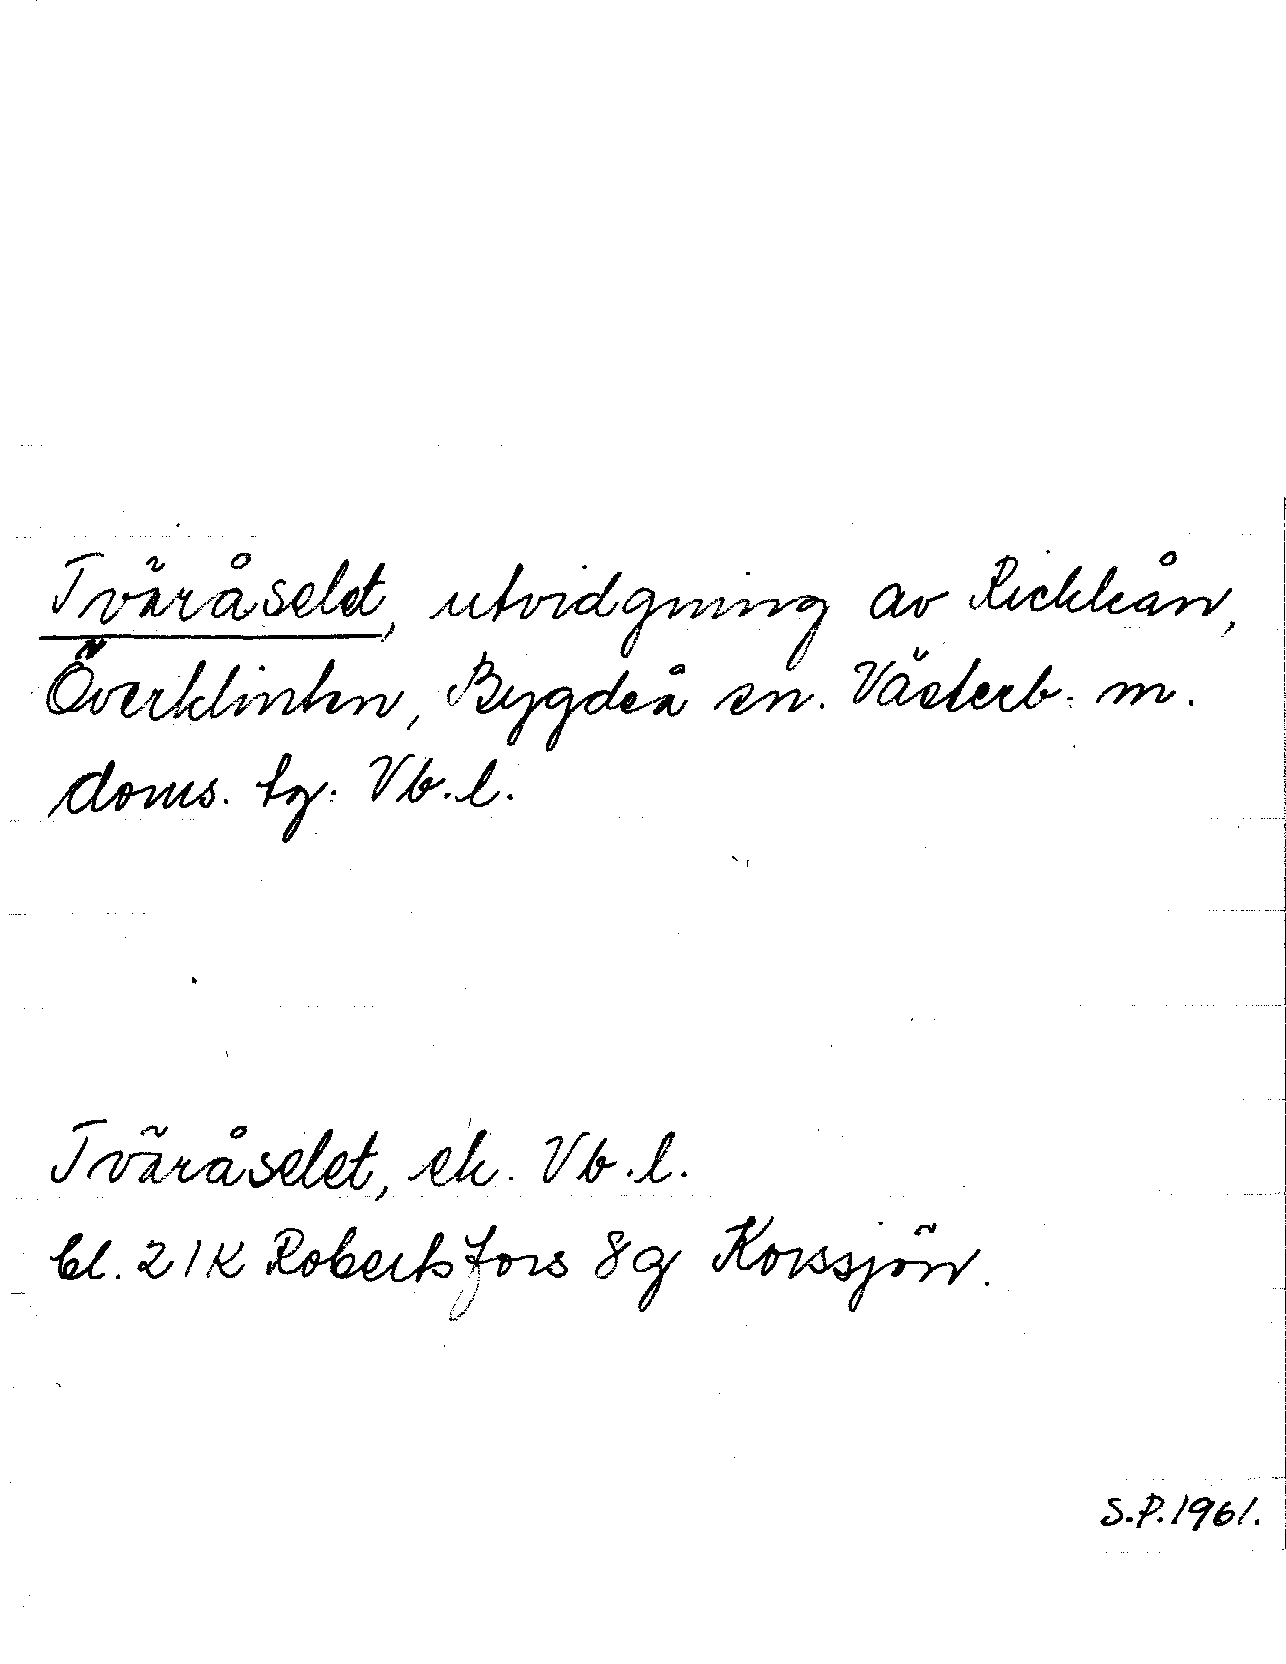 Tväråselet, utvidgning av Rickleån,
Överklinten, Bygdeå sn. Västerb. m.
doms. tg. Vb. l.
Tväråselet, ek. Vb. l.
bl. 21K Robertsfors 8g Korssjön.
S.P. 1961.